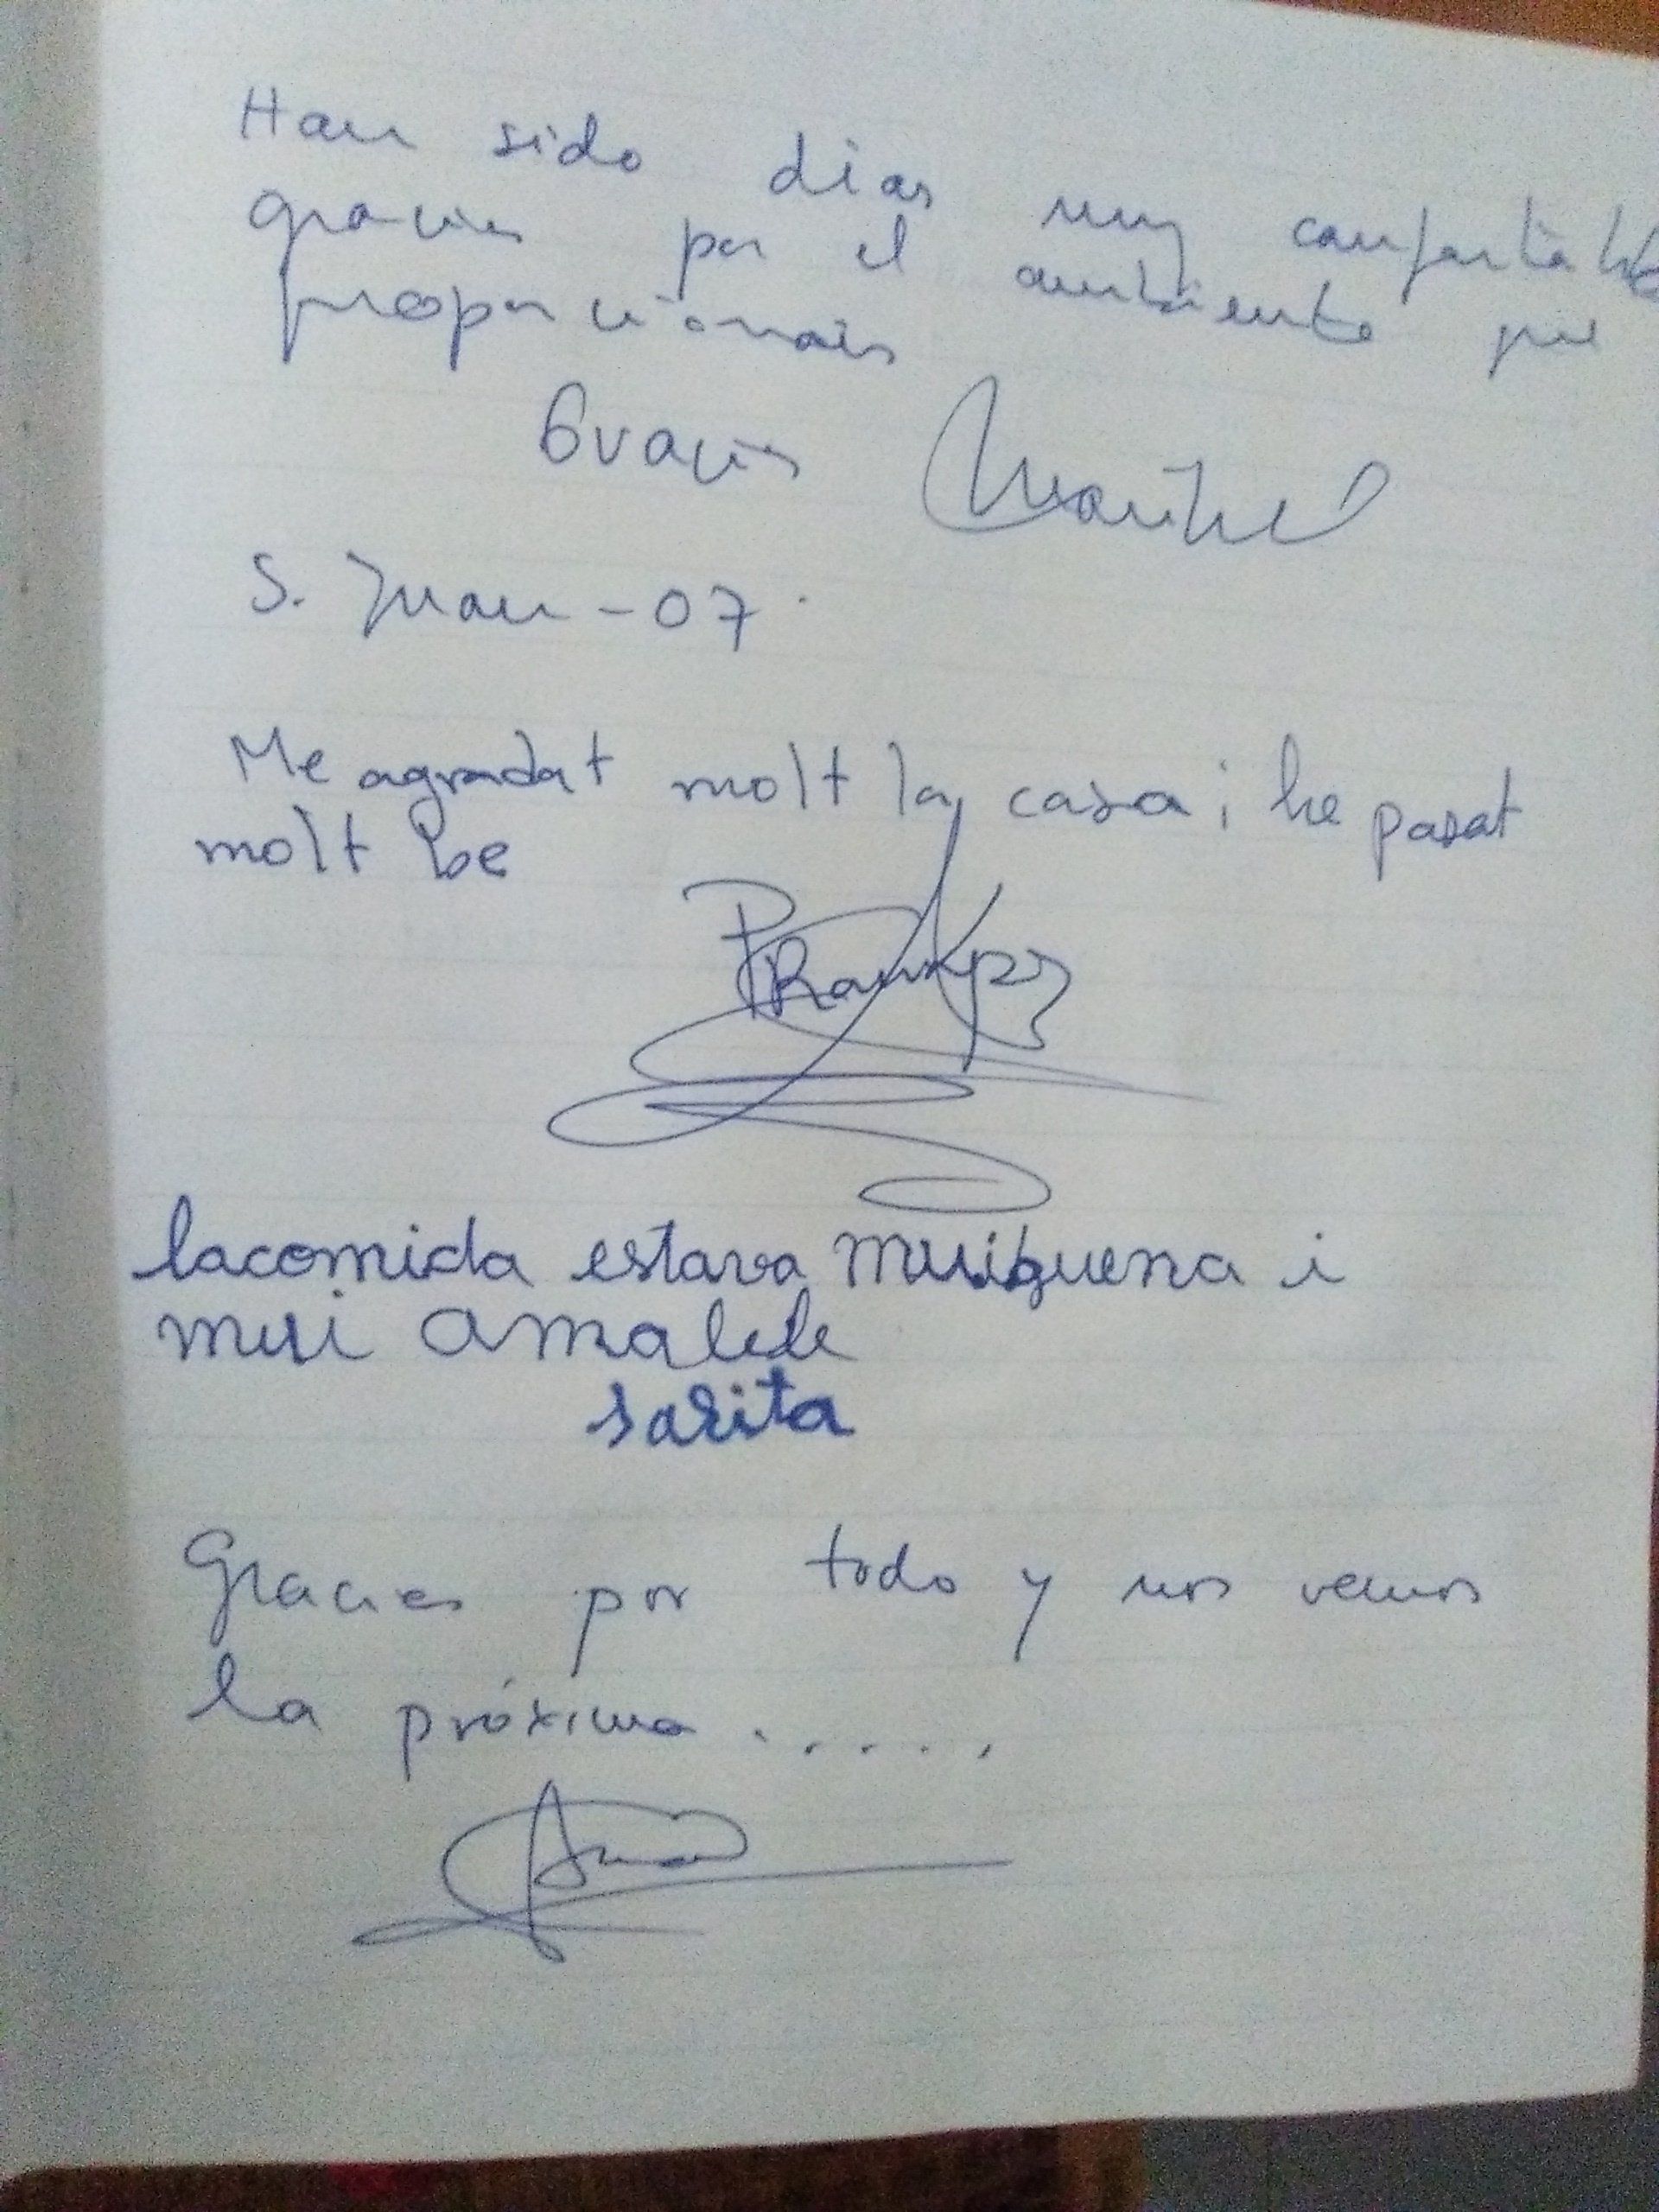 Han sido dias muy confortables
gracias por el ambiente que
proporcionais
Gracias Maribel
S. Juan - 07.
Me agradat molt la casa i he pasat
molt be
lacomida estava muibuena i
mui amalele
sarita
Gracias por todo y nos vemos
la próxima .....